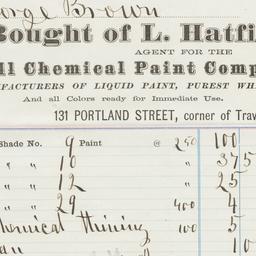 orge Brown
Bought of L. Hatfi
AGENT FOR THE
ll Chemical Paint Comp
UFACTURERS OF LIQUID PAINT, PUREST WH
And all Colors ready for Immediate Use.
131 PORTLAND STREET, corner of Trav
Shade No. 9 Paint @ 250 100
" " 10 " 375
" " 12 " 25
" " 29 400 4
hemical Thining 100 5
10